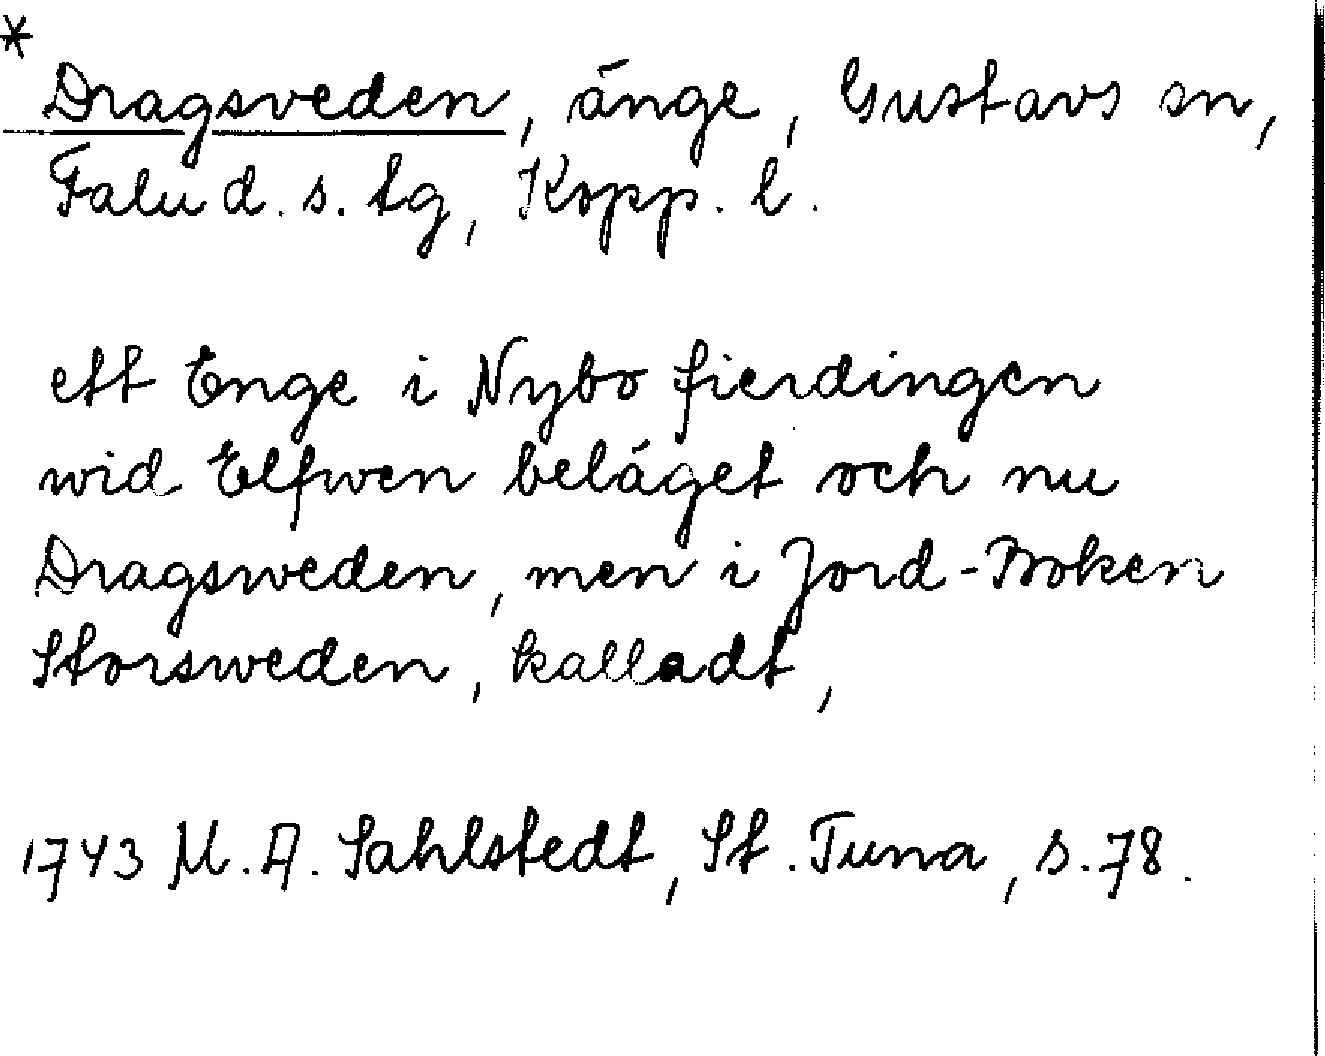 *
Dragsveden, änge, Gustavs sn,
Falu d. s. tg, Kopp. l.
ett Enge i Nybo fierdingen
wid Elfwen beläget och nu
Dragsweden, men i Jord-Boken
Storsweden, kalladt,
1743 M. A. Sahlstedt, St. Tuna, s. 78.